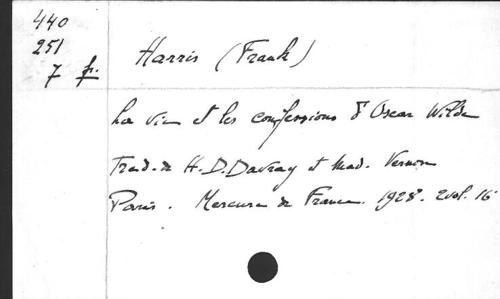 440
251
7 fr.
Harris (Frank)
La vie et les confessions d'Oscar Wilde
Trad. de H.-D. Davray et Mad. Vernon
Paris. Mercure de France. 1928. 2 vol. 16°